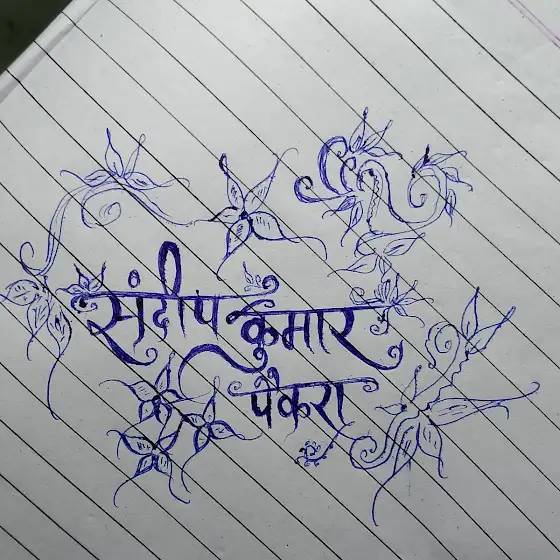 संदीप कुमार
पैकरा